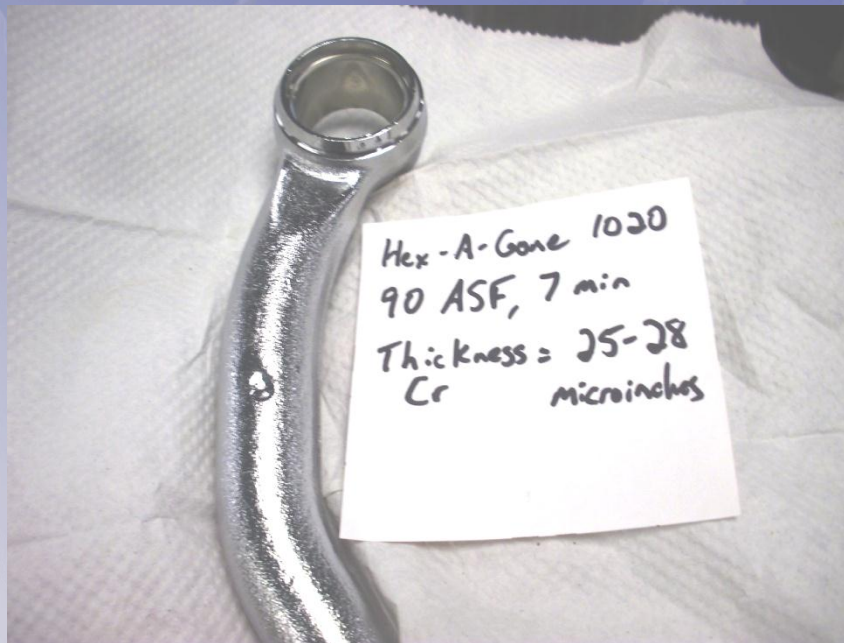 Hex-A-Gone 1020
90 ASF, 7 min
Thickness = 25-28
Cr microinches